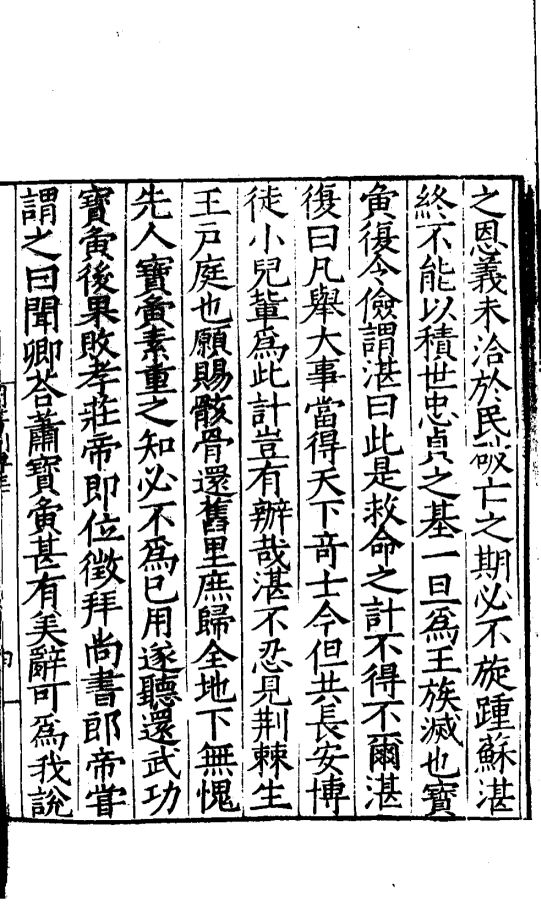 之恩義未洽於民破亡之期必不旋踵蘇湛
終不能以積世忠貞之基一旦爲王族滅也寶
夤復令儉謂湛曰此是救命之計不得不爾湛
復曰凡舉大事當得天下奇士今但共長安博
徒小兒輩爲此計豈有辦哉湛不忍見荆棘生
王戸庭也願賜骸骨還舊里庶歸全地下無愧
先人寶夤素重之知必不爲已用遂聽還武功
寶夤後果敗孝莊帝即位徵拜尚書郎帝甞
謂之曰聞卿荅蕭寶夤甚有美辭可爲我説